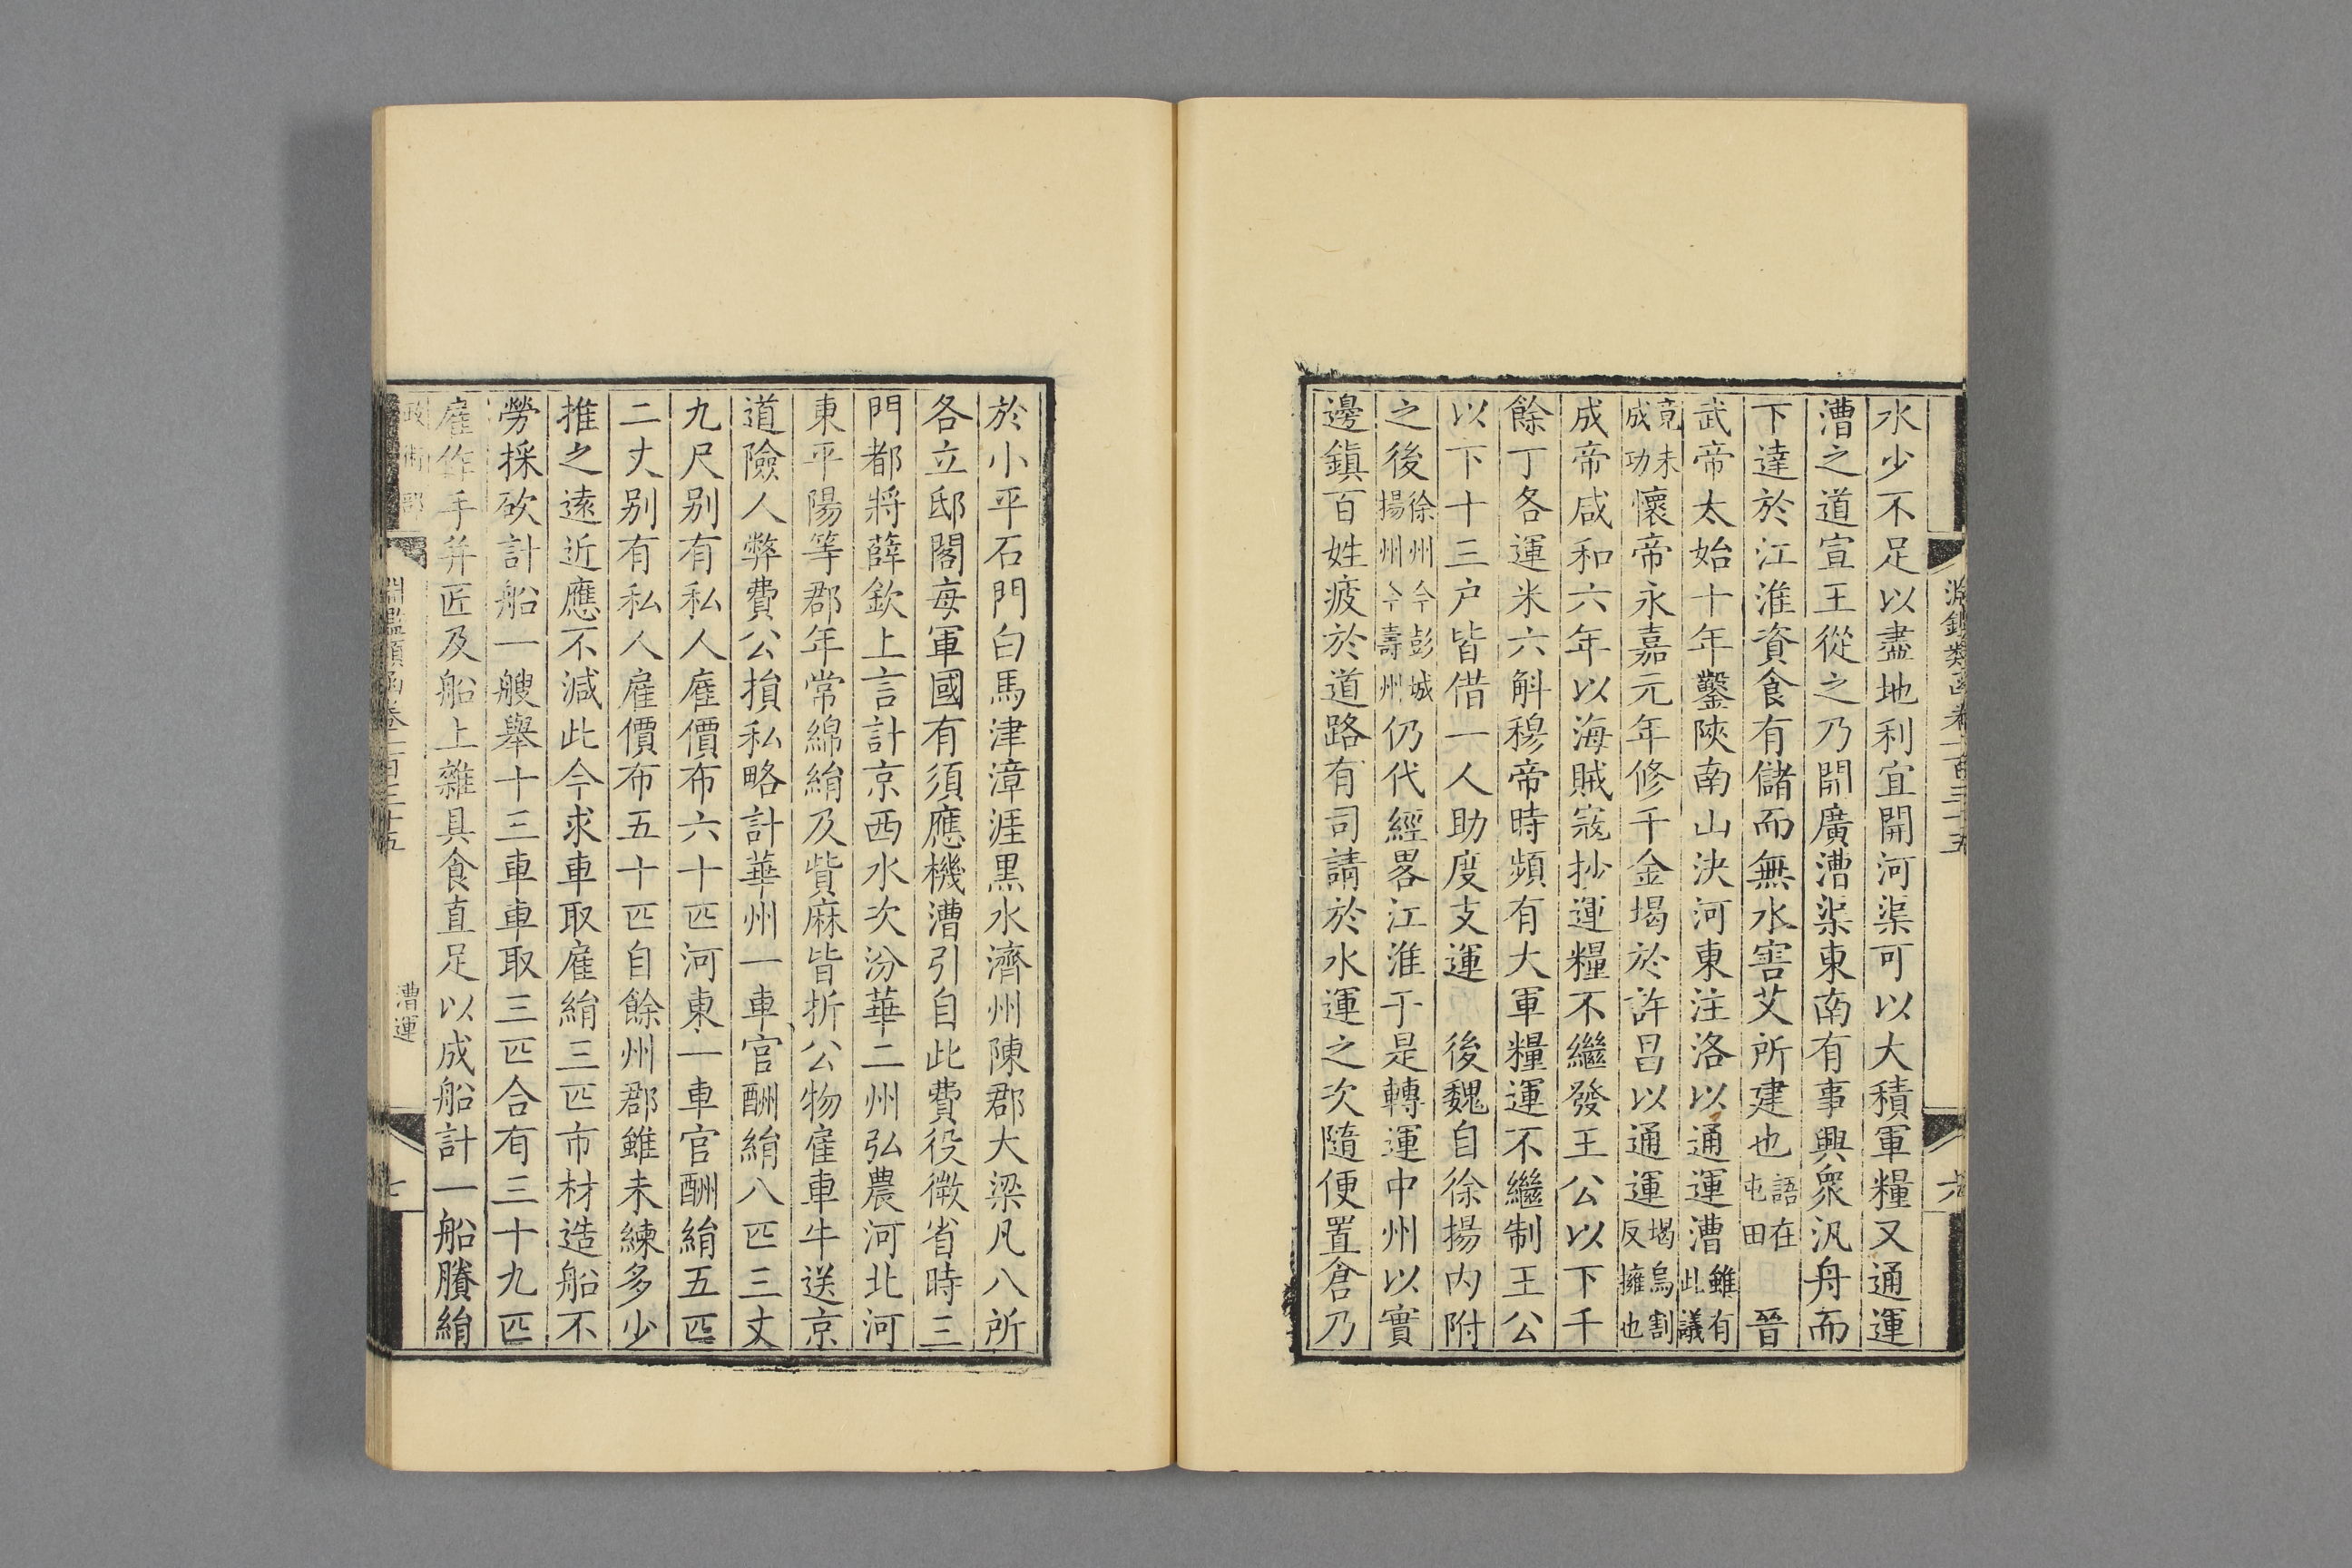 淵鑑類函卷一百三十五
六
水少不足以盡地利宜開河渠可以大積軍糧又通運
漕之道宣王從之乃開廣漕渠東南有事興衆汎舟而
下達於江淮資食有儲而無水害艾所建也語在屯田 晉
武帝太始十年鑿陝南山決河東注洛以通運漕雖有此議
竟未成功懷帝永嘉元年修千金堨於許昌以通運堨烏割反擁也
成帝咸和六年以海賊寇抄運糧不繼發王公以下千
餘丁各運米六斛穆帝時頻有大軍糧運不繼制王公
以下十三戶皆借一人助度支運 後魏自徐揚內附
之後徐州今彭城揚州今壽州仍代經畧江淮于是轉運中州以實
邊鎮百姓疲於道路有司請於水運之次隨便置倉乃
於小平石門白馬津漳涯黒水濟州陳郡大梁凡八所
各立邸閣每軍國有須應機漕引自此費役微省時三
門都將薛欽上言計京西水次汾華二州弘農河北河
東平陽等郡年常綿絹及貲麻皆折公物雇車牛送京
道險人弊費公損私略計華州一車官酬絹八匹三丈
九尺别有私人雇價布六十匹河東一車官酬絹五匹
二丈别有私人雇價布五十匹自餘州郡雖未練多少
推之遠近應不減此今求車取雇絹三匹市材造船不
勞採砍計船一艘舉十三車車取三匹合有三十九匹
雇作手并匠及船上雜具食直足以成船計一船賸絹
政術部
淵鑑類函卷一百三十五
漕運
七